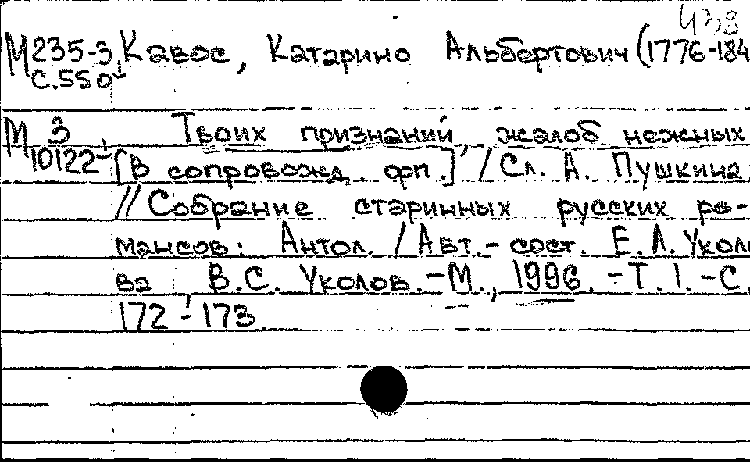 438
М235-3 Кавос, Катарино Альбертович (1776-184
С.550
М 3 Твоих признаний, жалоб нежных
10122-1 [В сопровожд. фп.] / Сл. А. Пушкина
// Собрание старинных русских ро-
мансов: Антол. / Авт.-сост. Е.Л. Уколо
ва В.С. Уколов. -М., 1996. -Т.1. -С.
172-173.